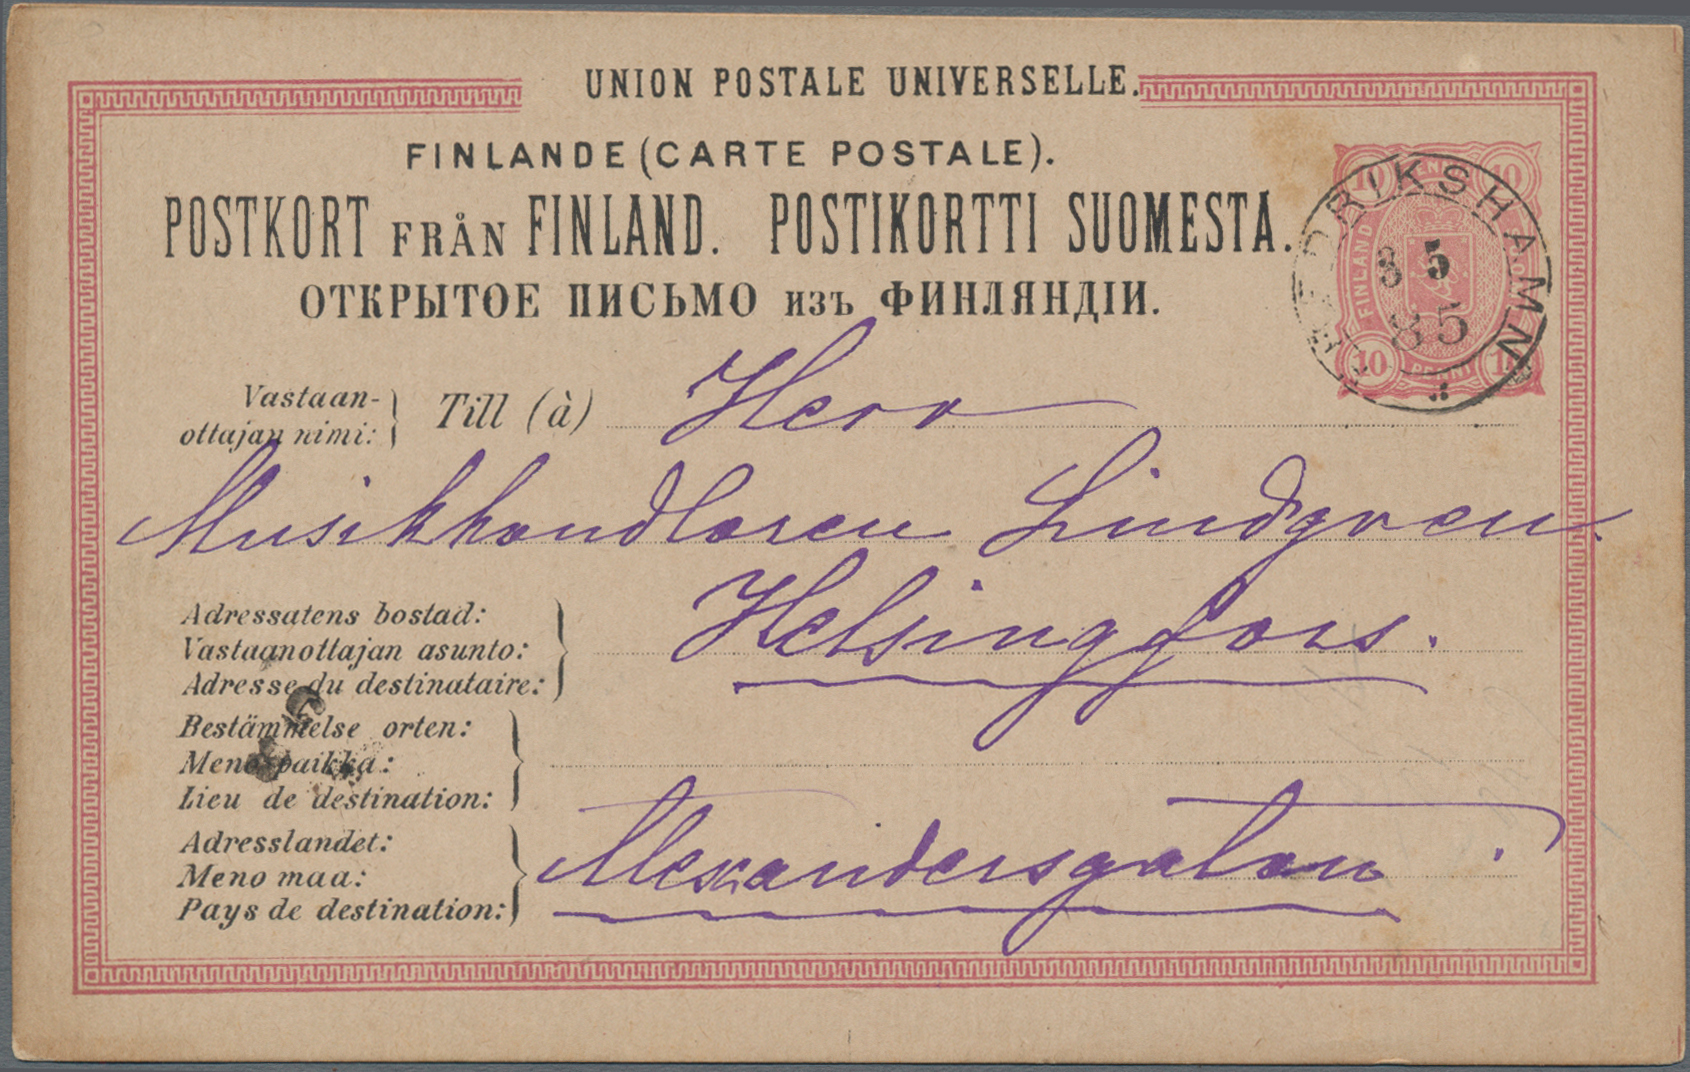 UNION POSTALE UNIVERSELLE.
FINLANDE (CARTE POSTALE).
POSTKORT FRÅN FINLAND. POSTIKORTTI SUOMESTA.
ОТКРЫТОЕ ПИСЬМО изъ ФИНЛЯНДІИ.
10 PENNI 10
FINLAND
10 PENNIÄ 10
FREDRIKSHAMN
3 5
85
Vastaan-
ottajan nimi: Till (à) Herr
Musikhandlaren Lindgren.
Adressatens bostad:
Vastaanottajan asunto: Helsingfors.
Adresse du destinataire:
Bestämmelse orten:
Menopaikka:
Lieu de destination:
Adresslandet:
Meno maa: Alexandersgatan.
Pays de destination: